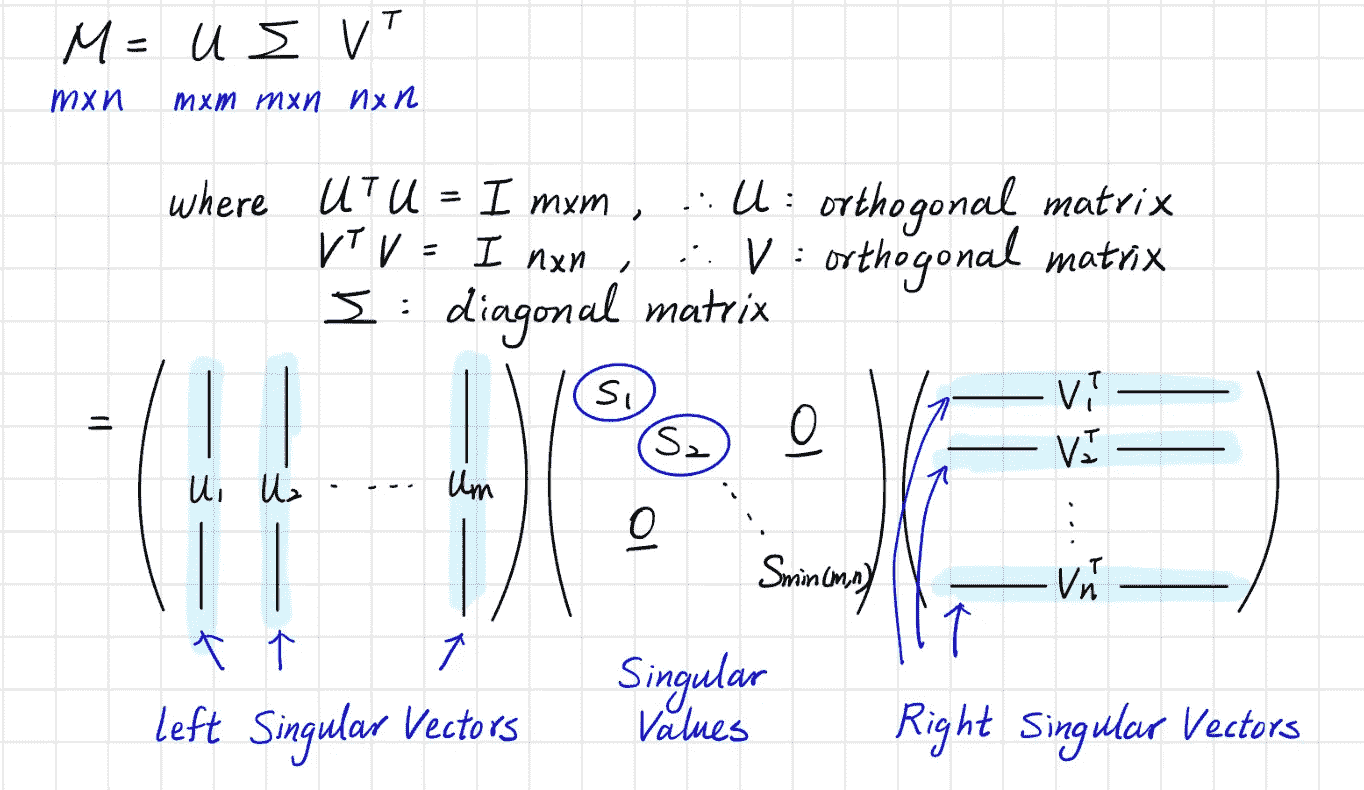 M = U Σ Vᵀ
m×n m×m m×n n×n
where UᵀU = I m×m , ∴ U : orthogonal matrix
VᵀV = I n×n , ∴ V : orthogonal matrix
Σ : diagonal matrix
= ( u₁ u₂ ..... um ) ( S₁ S₂ ⋱ Smin(m,n) 0 0 ) ( V₁ᵀ V₂ᵀ ⋮ Vnᵀ )
left Singular Vectors
Singular Values
Right Singular Vectors